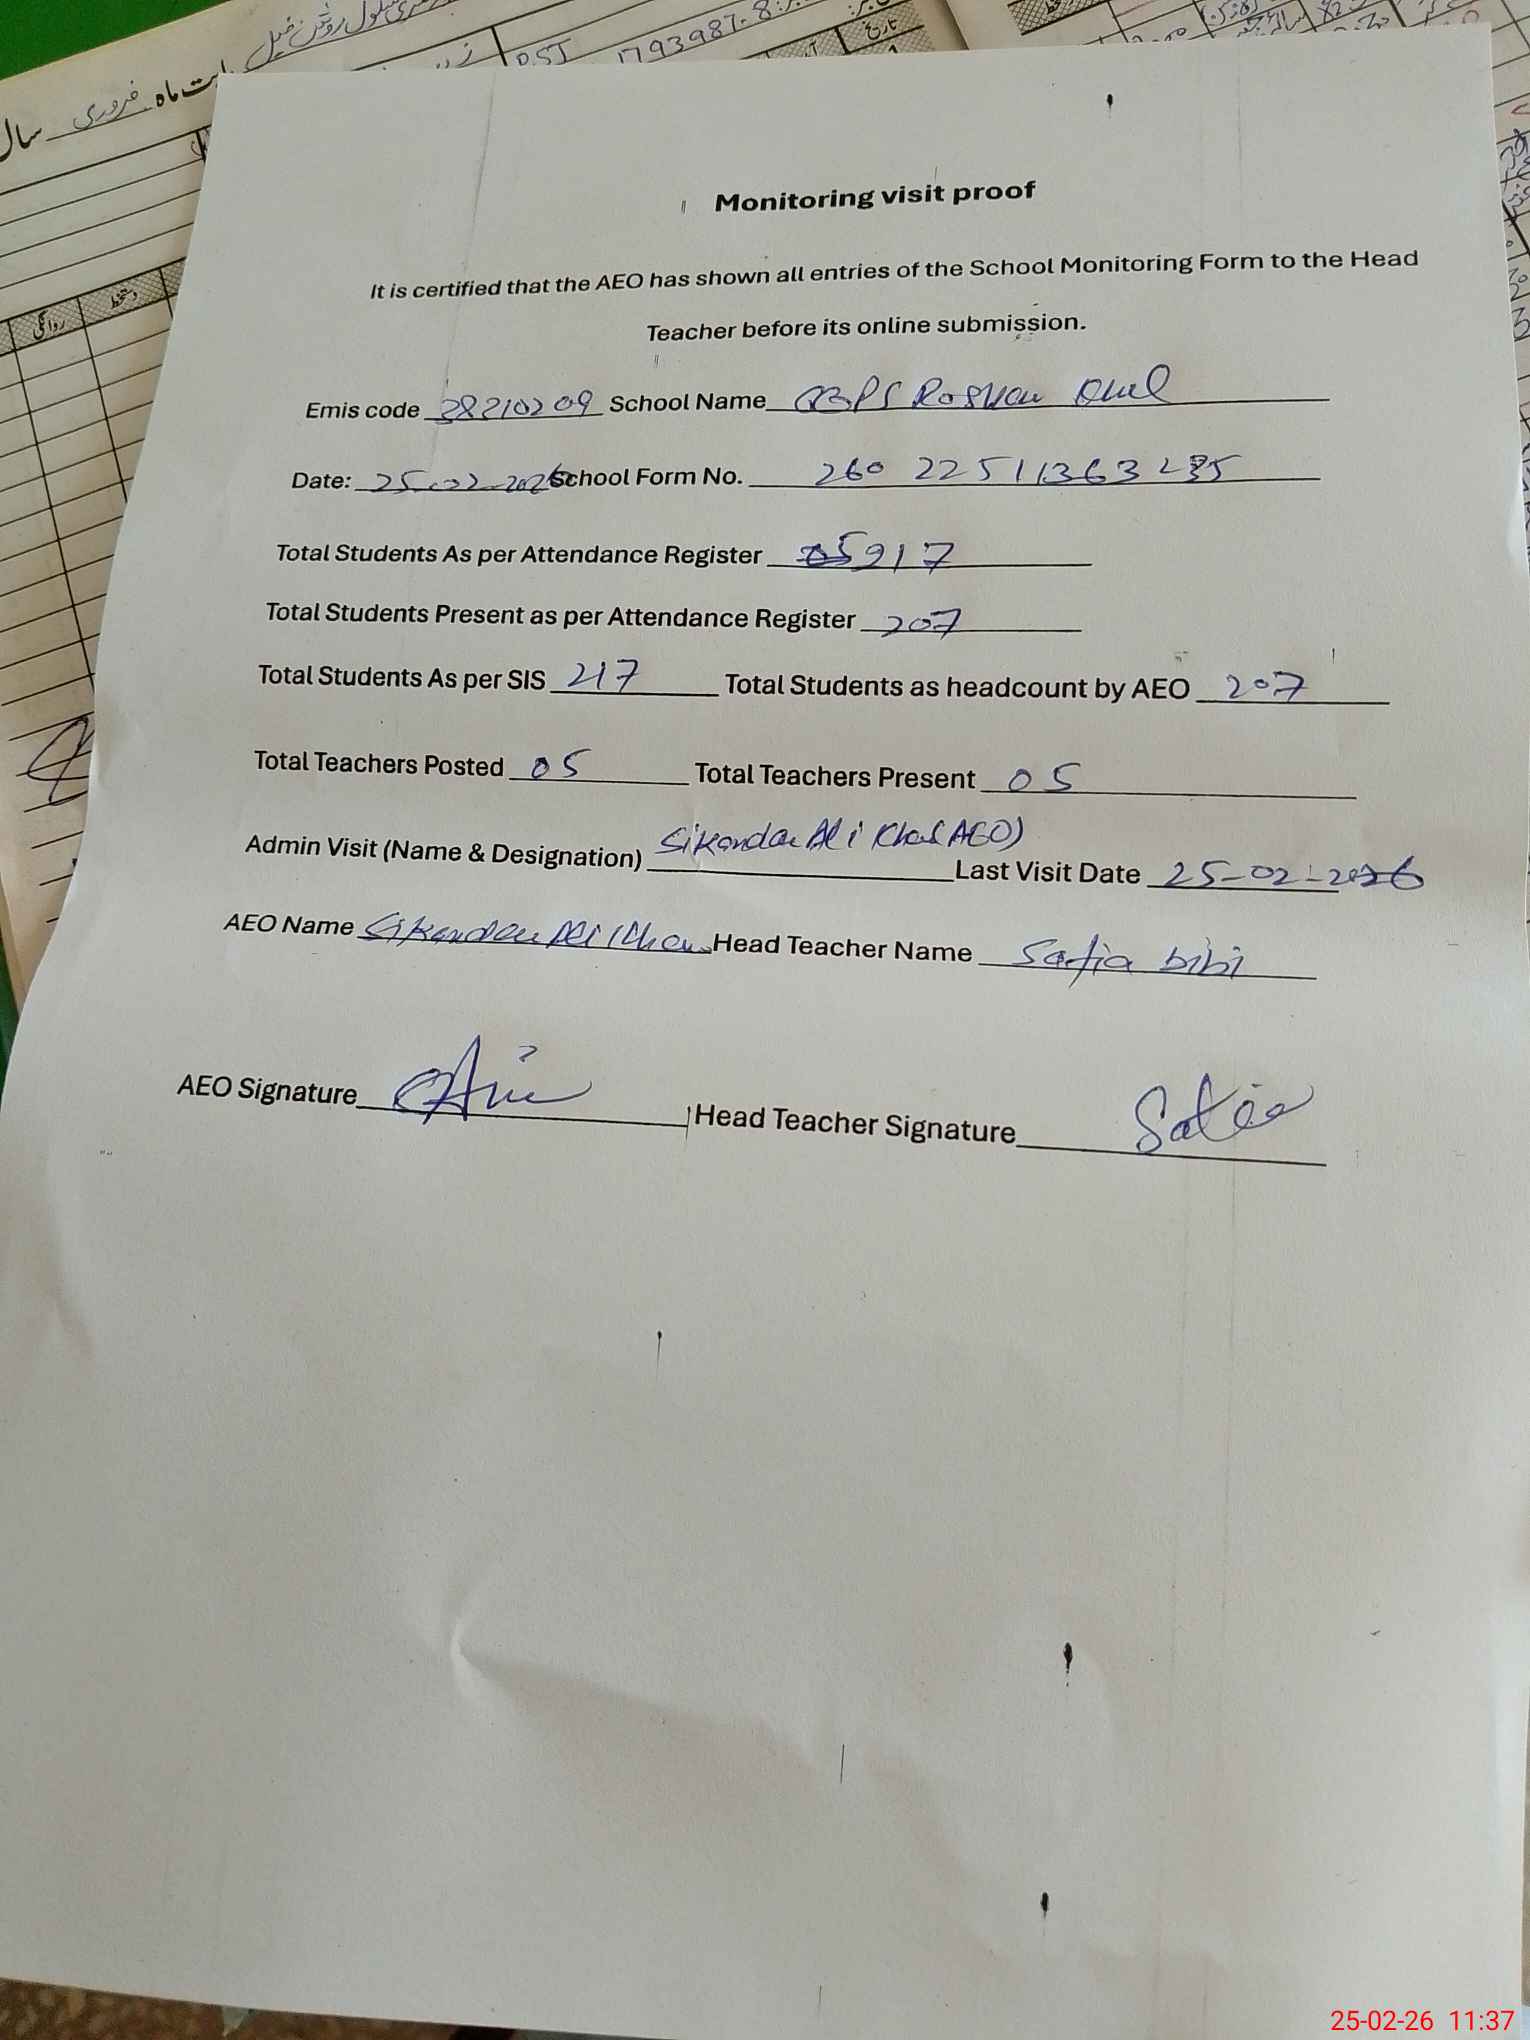 بابت ماہ فروری سال
DST 1793987-8
تاریخ
روانگی دستخط
Monitoring visit proof
It is certified that the AEO has shown all entries of the School Monitoring Form to the Head
Teacher before its online submission.
Emis code 38210209 School Name GBPS Roshan Khel
Date: 25-02-2026 School Form No.
Total Students As per Attendance Register 217
Total Students Present as per Attendance Register 207
Total Students As per SIS 217 Total Students as headcount by AEO 207
Total Teachers Posted 05 Total Teachers Present 05
Admin Visit (Name & Designation) Sikandar Ali Khan AEO) Last Visit Date 25-02-2026
AEO Name Sikandar Ali Khan Head Teacher Name Safia bibi
AEO Signature Head Teacher Signature Safia
25-02-26 11:37